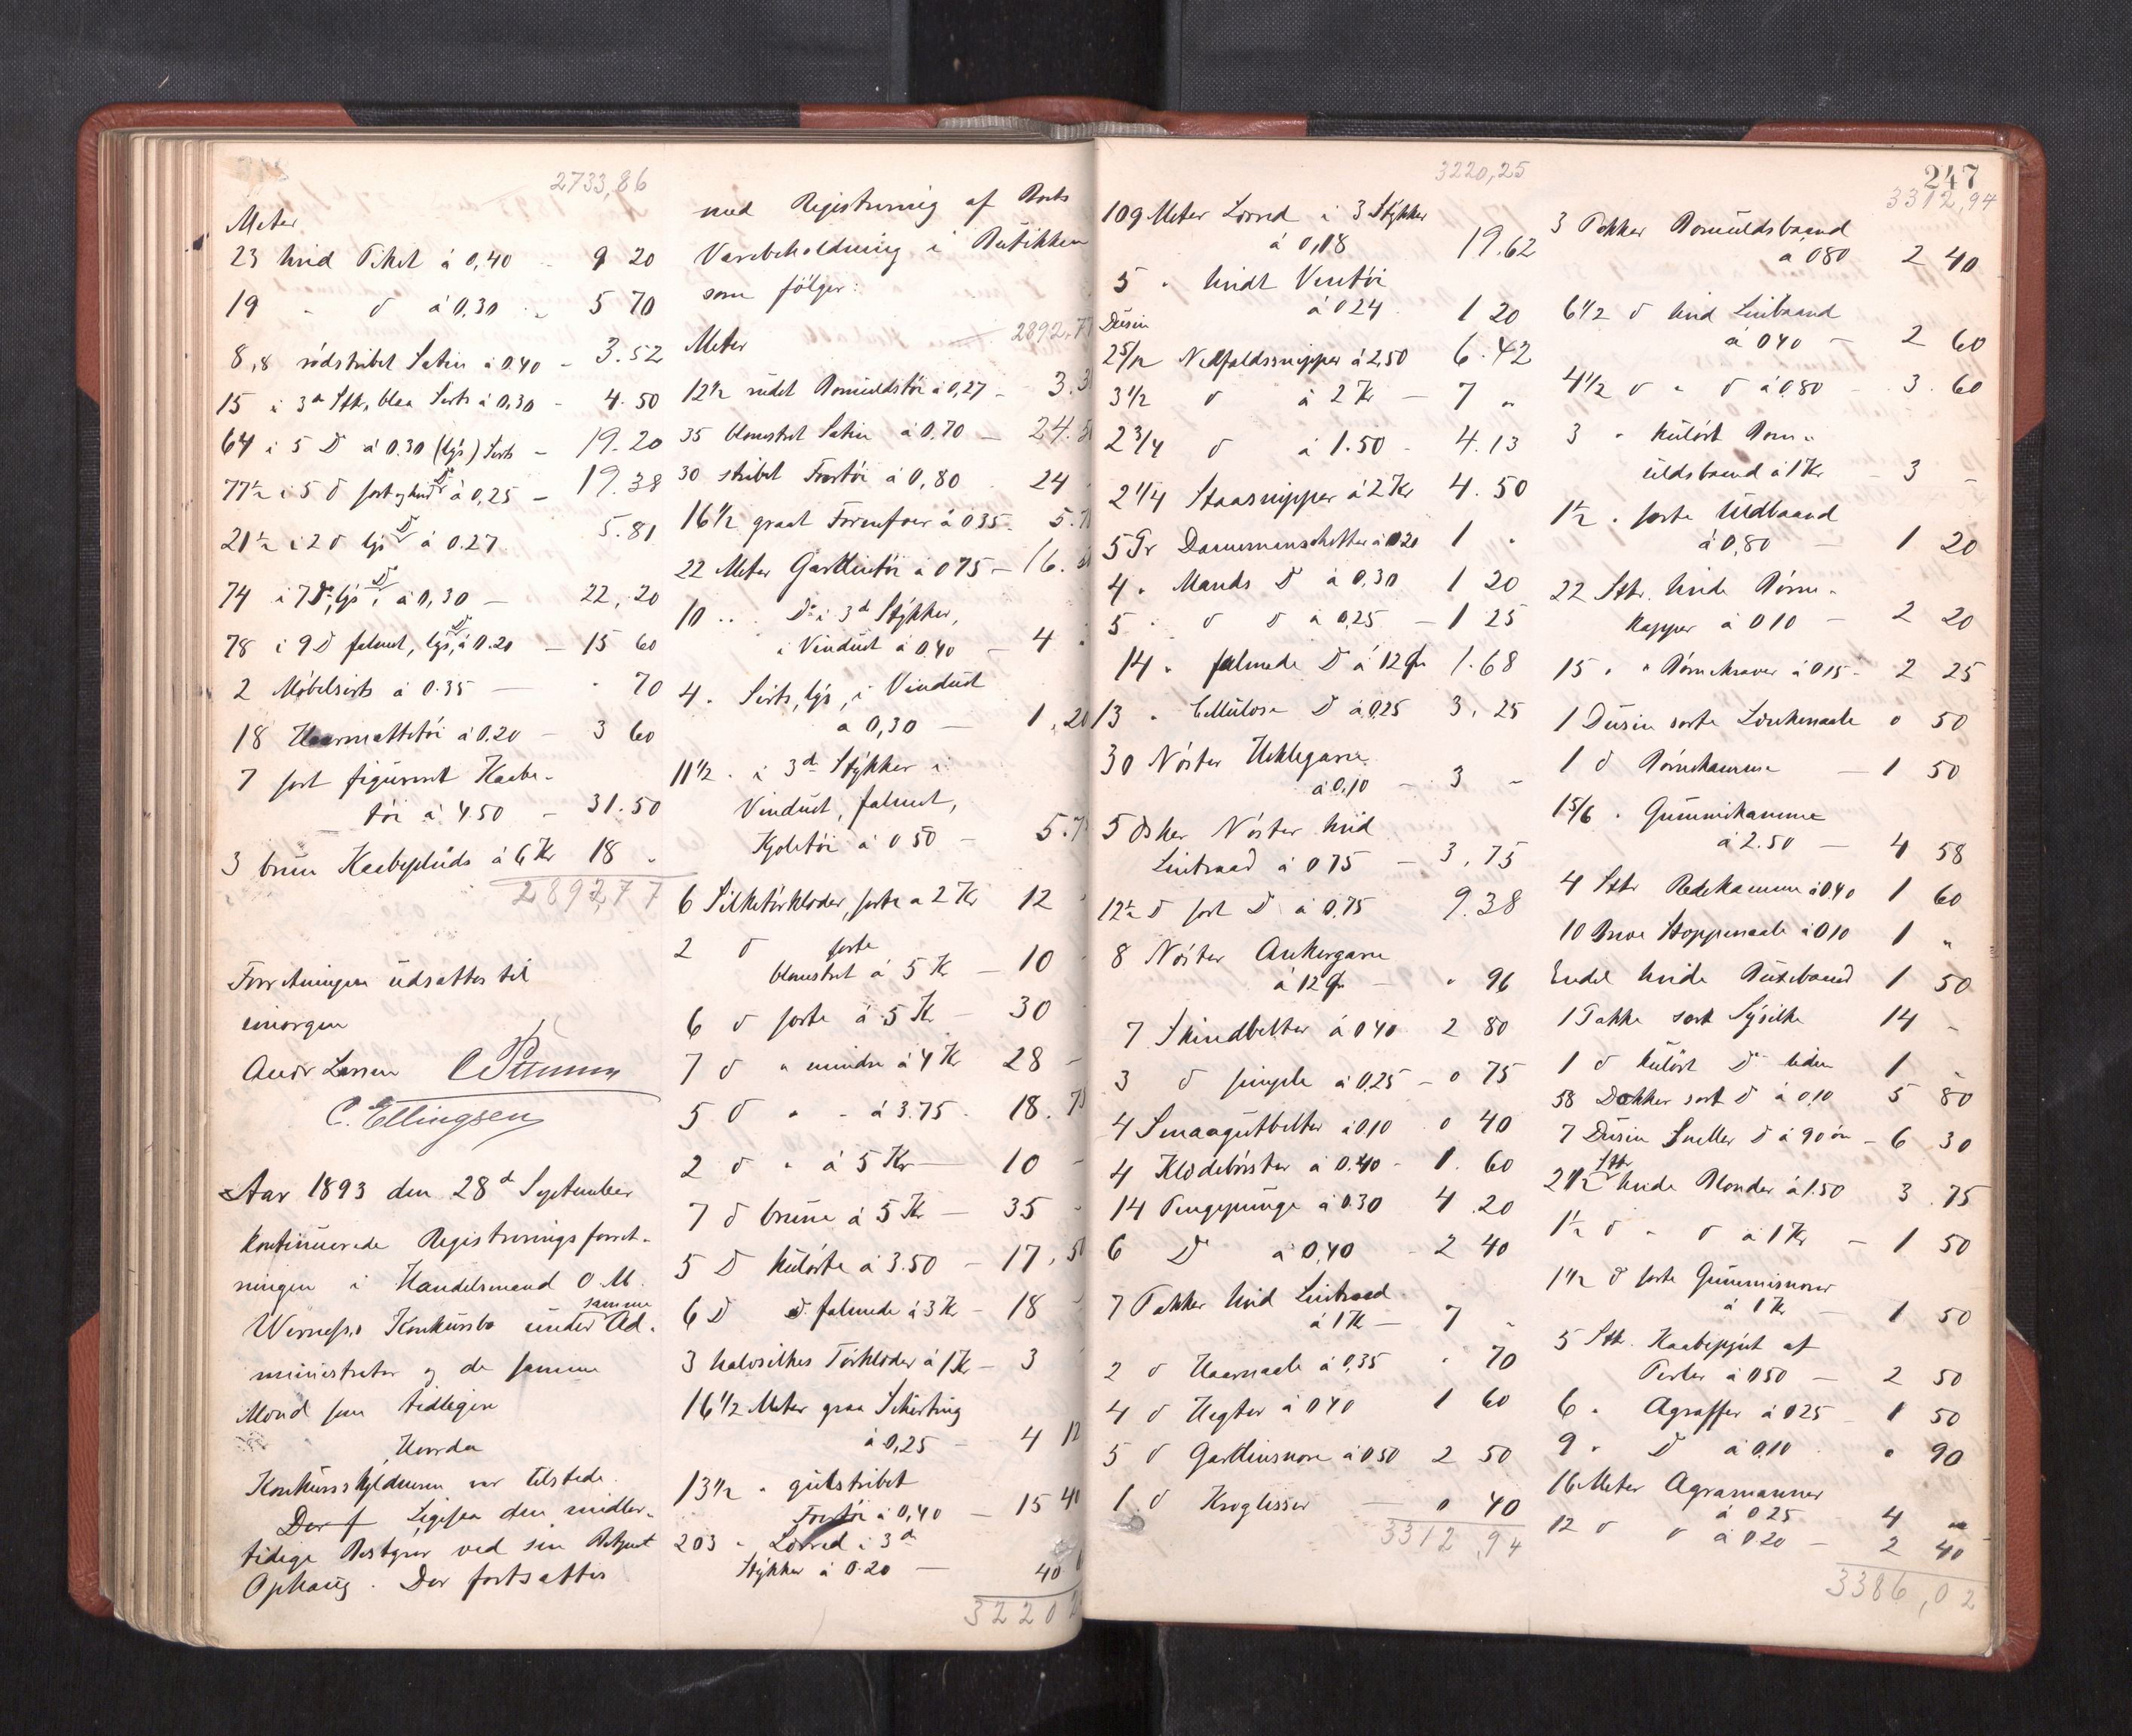 2733,86
Meter
23 hvid Piket à 0,40 - 9 20
19 " d à 0.30 - 5 70
8,8 rödstribet Satin à 0.40 - 3.52
15 i 3 Stk, blaa Sirts à 0,30 - 4.50
64 i 5 D à 0.30 (lys) Sirts - 19.20
77½ i 5 d sort og hvid D à 0,25 - 19.38
21½ i 2 d lys D à 0.27 5.81
74 i 7 D, lys D, à 0,30 - 22,20
78 i 9 D falmet, lys D, à 0.20 - 15 60
2 Möbelsirts à 0.35 - " 70
18 Haarmattetöi à 0.20 - 3 60
7 sort figureret Kaabe-
töi à 4.50 - 31.50
3 brun Kaabeplüds à 6 Kr 18 "
2892,77
Forretningen udsattes til
imorgen
Andr Larsen
C. Ellingsen
Aar 1893 den 28d September
kontinuerede Registreringsforret-
ningen i Handelsmand O. M.
Wernessis Konkursbo under samme Ad-
ministrator og de samme
Mænd som tidligere
Hvorda
Konkursskyldneren var tilstede.
Der f Ligesaa den midler-
tidige Bestyrer ved sin
Ophang. Der fortsattes
med Registrering af Boets
Varebeholdning i Butikken
som fölger:
Meter 2892,77
12½ rudet Bomuldstöi à 0,27 - 3.3
35 blomstret Satin à 0.70 - 24.5
30 stribet Foertöi à 0,80 24
16½ graat Foer à 0.35 - 5.7
22 Meter Gardintöi à 0 75 - 16.
10 " D i 3d Stykker,
i Vinduet à 0.40 - 4
4 " Sirts, lys, i Vinduet
à 0,30 - 1,20
11½ " i 3d Stykker i
Vinduet, falmet,
Kjoletöi à 0 50 - 5.7
6 Silketörklæder, sorte à 2 Kr 12
2 d sorte
blomstret à 5 Kr - 10
6 d sorte à 5 Kr - 30
7 d " mindre à 4 Kr 28 -
5 d " " à 3.75 - 18.75
2 d " à 5 Kr - 10 -
7 d brune à 5 Kr - 35 -
5 D kulörte à 3.50 - 17,50
6 D d. falmede à 3 Kr - 18 -
3 halvsilkes Törklæder à 1 Kr - 3
16½ Meter graa Schirting
à 0,25 - 4 12
13½ " gulstribet
Foertöi à 0,40 - 15 40
203 " Lærred i 3d
Stykker à 0.20 - 40
3220
3220,25
109 Meter Lærred i 3 Stykker
à 0,18 19.62
5 " hvidt Ventöi
à 0 24 1 20
Dusin
25/12 Nedfaldssnipper à 2,50 6.42
3½ d à 2 Kr - 7 "
2 3/4 d à 1.50 - 4.13
2 1/4 Staasnipper à 2 Kr 4.50
5 Pr Damemanschetter à 0 20 1 "
4 " Mands D à 0,30 1 20
5 " d d à 0,25 - 1 25
14 " falmede D à 12 Ør 1.68
13 " Cellulose D à 0,25 3,25
30 Nöster Heklegarn
à 0,10 - 3 -
5 Æsker Nöster hvid
Lintraad à 0 75 - 3,75
12½ d sort D à 0,75 9.38
8 Nöster Ankergarn
à 12 Ør - " 96
7 Skindbelter à 0 40 2 80
3 d simple à 0.25 - 0 75
4 Smaagutbelter à 0,10 0 40
4 Klædebörster à 0.40 - 1.60
14 Pengepunge à 0.30 4.20
6 D à 0,40 - 2 40
7 Pakker hvid Lintraad
à 1 Kr - 7 -
2 d Haarnaale à 0,35 " 70
4 d Hegter à 0 40 1 60
5 d Gardinsnore à 0 50 2 50
1 d Kroglisser - 0 40
3312,94
247
3312,94
3 Pakker Bomuldsbaand
à 0 80 2 40
6½ d hvid Linbaand
à 0 40 - 2 60
4½ d " d à 0,80 - 3.60
3 " kulört Bom-
uldsbaand à 1 Kr - 3 -
1½ " sorte Uldbaand
à 0,80 - 1 20
22 Stk. hvide Börne-
kapper à 0 10 - 2 20
15 " " Börnekraver à 0 15 - 2 25
1 Dusin sorte Lommenaale 0 50
1 d Börnekamme - 1 50
1 5/6 " Gummikamme
à 2.50 - 4 58
4 Stk Redekamme à 0,40 1 60
10 Breve Stoppenaale à 0 10 1 "
Endel hvide 1 50
1 Pakke sort Sysilke 14 -
1 d kulört D liden 1 -
58 Dokker sort d à 0,10 5 80
7 Dusin Sneller d à 90 öre - 6 30
2½ Stk hvide Blonder à 1.50 3.75
1½ d " d à 1 Kr - 1 50
1½ d sorte Gummisnorer
à 1 Kr - 1 50
5 Stk. Kaabepynt af
Perler à 0 50 - 2 50
6 " Agraffer à 0 25 1 50
9 " D à 0,10 " 90
16 Meter Agramanner
à 0 25 4 "
12 d d à 0 20 - 2 40
3386,02